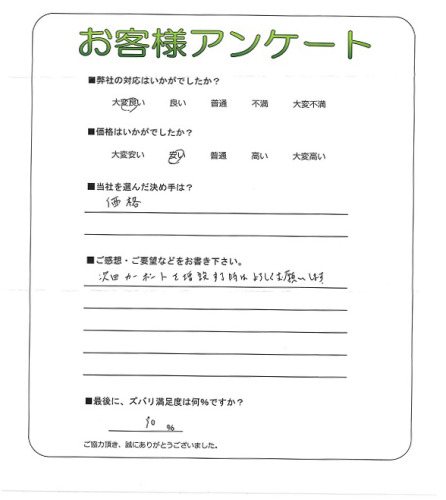 お客様アンケート
■弊社の対応はいかがでしたか？
大変良い　良い　普通　不満　大変不満
■価格はいかがでしたか？
大変安い　安い　普通　高い　大変高い
■当社を選んだ決め手は？
価格
■ご感想・ご要望などをお書き下さい。
次回カーポートを増設する時はよろしくお願いします
■最後に、ズバリ満足度は何％ですか？
90 ％
ご協力頂き、誠にありがとうございました。